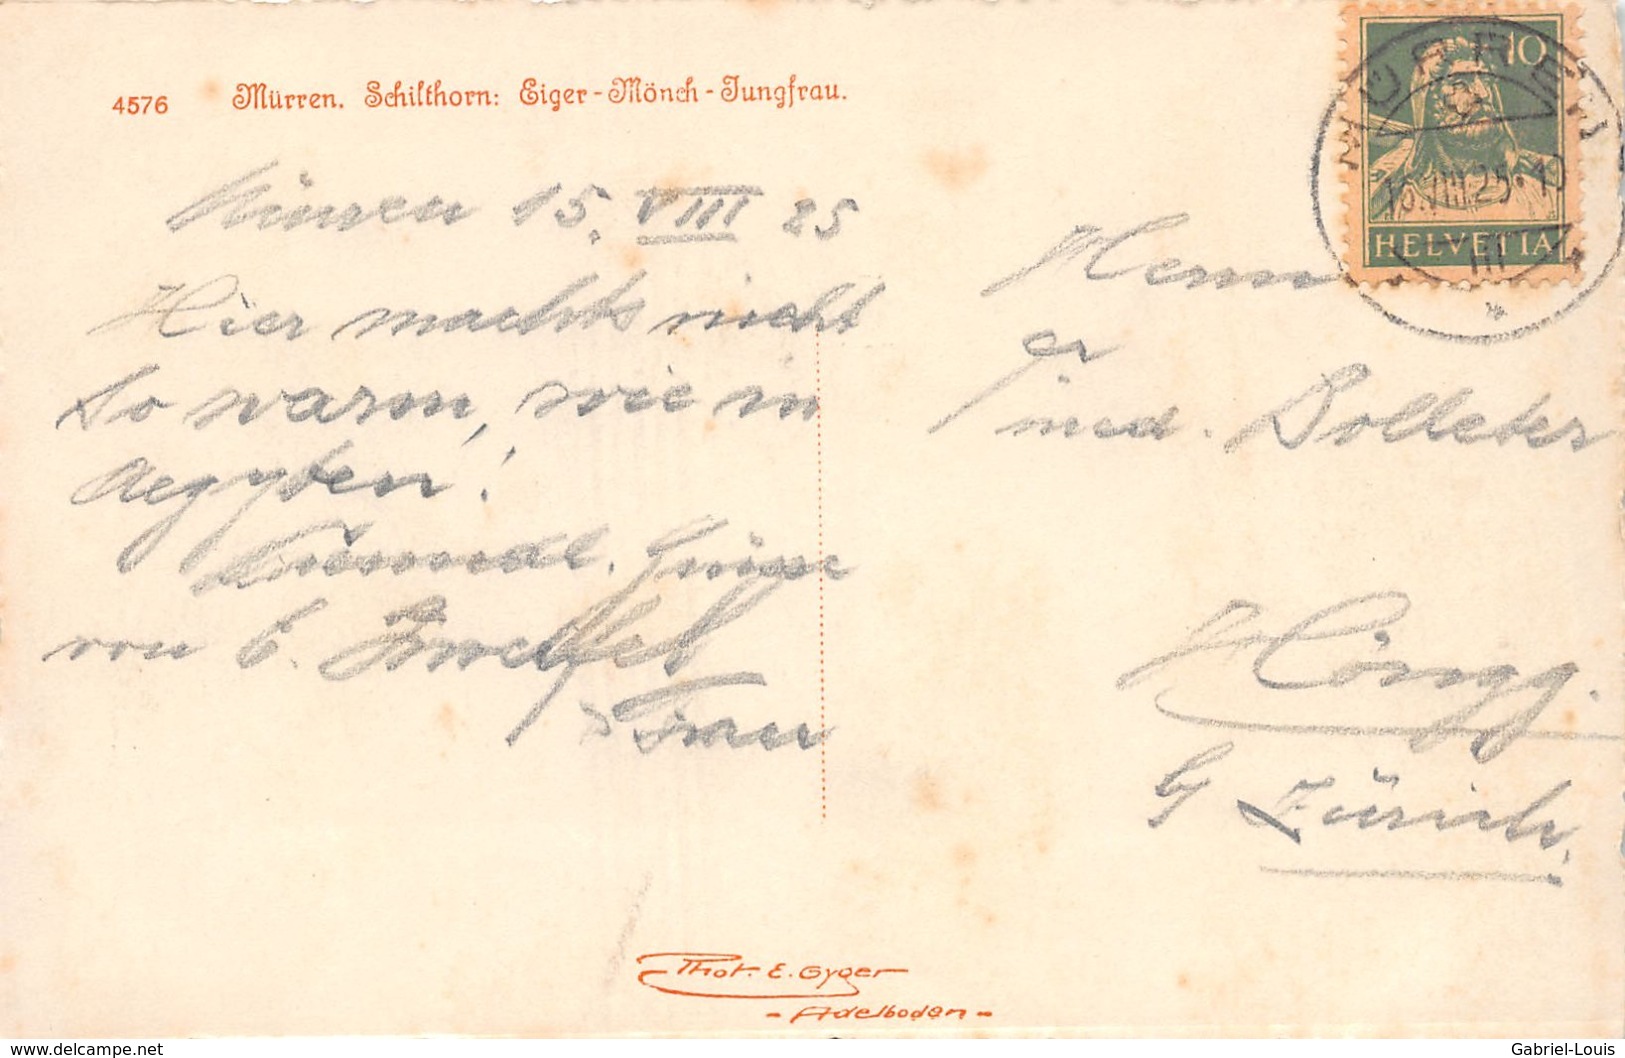 4576 Mürren. Schilthorn: Eiger-Mönch-Jungfrau.
15. VIII 25
Hier machts nicht
so warm, wie in
Aegypten!
Grüsse
von
Frau
Herrn
med. Dolleter
Höngg.
b/ Zürich.
MÜRREN
15.VIII.25
10
HELVETIA
Phot. E. Gyger
- Adelboden -
www.delcampe.net
Gabriel-Louis